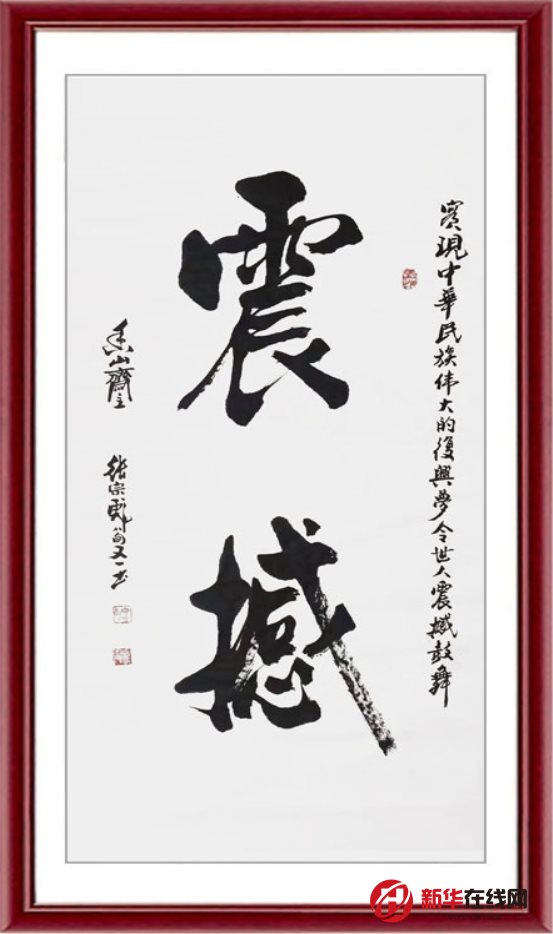 實現中華民族伟大的復興夢令世人震撼鼓舞
震撼
香山齋主
張宗彪
又一书
新华在线网